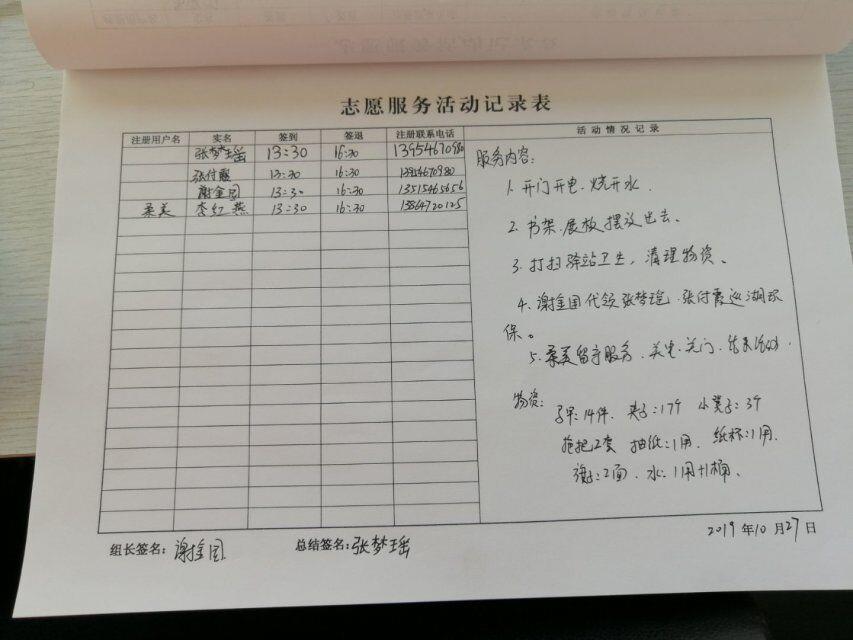 志愿服务活动记录表
注册用户名 实名 签到 签退 注册联系电话 活动情况记录
张梦瑶 13:30 16:30 13954670980
张付霞 13:30 16:30 13954670980
谢金国 13:30 16:30 13515465656
柔美 李红燕 13:30 16:30 13864720125
服务内容:
1. 开门开电、烧开水.
2. 书架.展板摆放出去。
3. 打扫驿站卫生,清理物资。
4. 谢金国代领张梦瑶、张付霞巡湖环
保。
5. 柔美留守服务、关电.关门、结束活动.
物资: 14件. 夹子:17个 小凳子:3个
拖把2套 抽纸:1用. 纸杯:1用.
旗:2面. 水:1用+1桶、
2019年10月27日
组长签名:谢金国 总结签名:张梦瑶